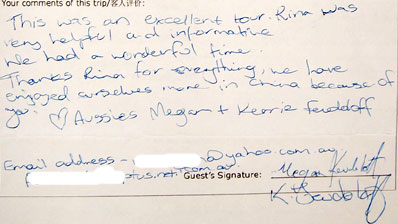 Your comments of this trip/客人评价:
This was an excellent tour. Rina was
very helpful and informative
We had a wonderful time.
Thanks Rina for everything, we have
enjoyed ourselves more in China because of
you. ♡ Aussies Megan + Kerrie
Email address - @yahoo.com.au
tus.net.com.au
Guest's Signature: Megan
K.